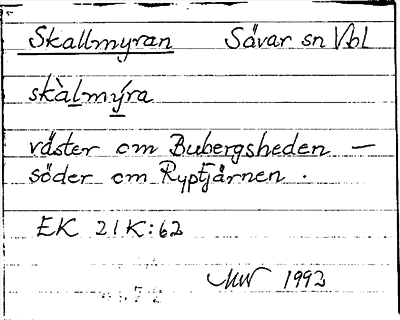 Skallmyran Sävar sn Vbl
skàlmýra
väster om Bubergsheden —
söder om Ryptjärnen.
EK 21K:62
1992